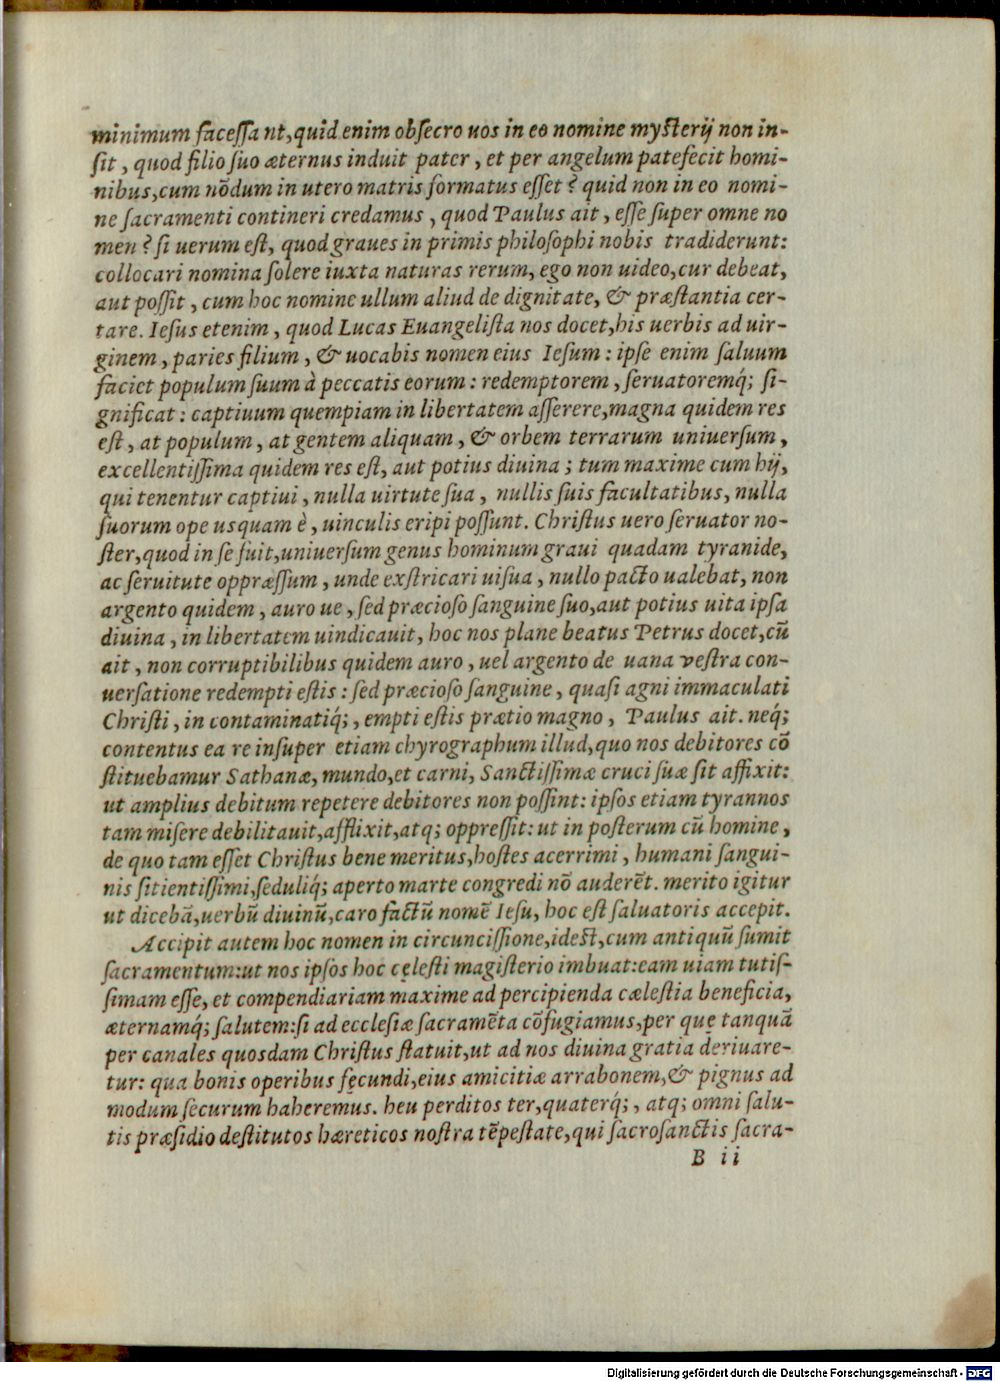 minimum facessa nt,quid enim obsecro uos in eo nomine mysterij non in-
sit , quod filio suo æternus induit pater , et per angelum patefecit homi-
nibus,cum nõdum in utero matris formatus esset ? quid non in eo nomi-
ne sacramenti contineri credamus , quod Paulus ait , esse super omne no
men ? si uerum est, quod graues in primis philosophi nobis tradiderunt:
collocari nomina solere iuxta naturas rerum, ego non uideo,cur debeat,
aut possit , cum hoc nomine ullum aliud de dignitate, & præstantia cer-
tare. Iesus etenim , quod Lucas Euangelista nos docet,his uerbis ad uir-
ginem , paries filium , & uocabis nomen eius Iesum : ipse enim saluum
faciet populum suum à peccatis eorum : redemptorem , seruatoremq́; si-
gnificat : captiuum quempiam in libertatem asserere,magna quidem res
est , at populum , at gentem aliquam , & orbem terrarum uniuersum ,
excellentissima quidem res est, aut potius diuina ; tum maxime cum hij,
qui tenentur captiui , nulla uirtute sua , nullis suis facultatibus, nulla
suorum ope usquam è , uinculis eripi possunt. Christus uero seruator no-
ster,quod in se fuit,uniuersum genus hominum graui quadam tyranide,
ac seruitute oppræssum , unde exstricari ui sua , nullo pacto ualebat, non
argento quidem , auro ue , sed præcioso sanguine suo,aut potius uita ipsa
diuina , in libertatem uindicauit, hoc nos plane beatus Petrus docet,cũ
ait , non corruptibilibus quidem auro , uel argento de uana vestra con-
uersatione redempti estis : sed præcioso sanguine , quasi agni immaculati
Christi , in contaminatiq́; , empti estis prætio magno , Paulus ait. neq́;
contentus ea re insuper etiam chyrographum illud,quo nos debitores cõ
stituebamur Sathanæ, mundo,et carni, Sanctissimæ cruci suæ sit affixit:
ut amplius debitum repetere debitores non possint: ipsos etiam tyrannos
tam misere debilitauit,afflixit,atq; oppressit: ut in posterum cũ homine ,
de quo tam esset Christus bene meritus,hostes acerrimi , humani sangui-
nis sitientissimi,seduliq́; aperto marte congredi nõ auderẽt. merito igitur
ut dicebã,uerbũ diuinũ,caro factũ nomẽ Iesu, hoc est saluatoris accepit.
Accipit autem hoc nomen in circuncissione,idest,cum antiquũ sumit
sacramentum:ut nos ipsos hoc cęlesti magisterio imbuat:eam uiam tutis-
simam esse, et compendiariam maxime ad percipienda cælestia beneficia,
æternamq́; salutem:si ad ecclesiæ sacramẽta cõfugiamus,per quę tanquã
per canales quosdam Christus statuit,ut ad nos diuina gratia deriuare-
tur: qua bonis operibus fęcundi,eius amicitiæ arrabonem,& pignus ad
modum securum haheremus. heu perditos ter,quaterq́; , atq; omni salu-
tis præsidio destitutos hæreticos nostra tẽpestate,qui sacrosanctis sacra-
B ii
Digitalisierung gefördert durch die Deutsche Forschungsgemeinschaft - DFG